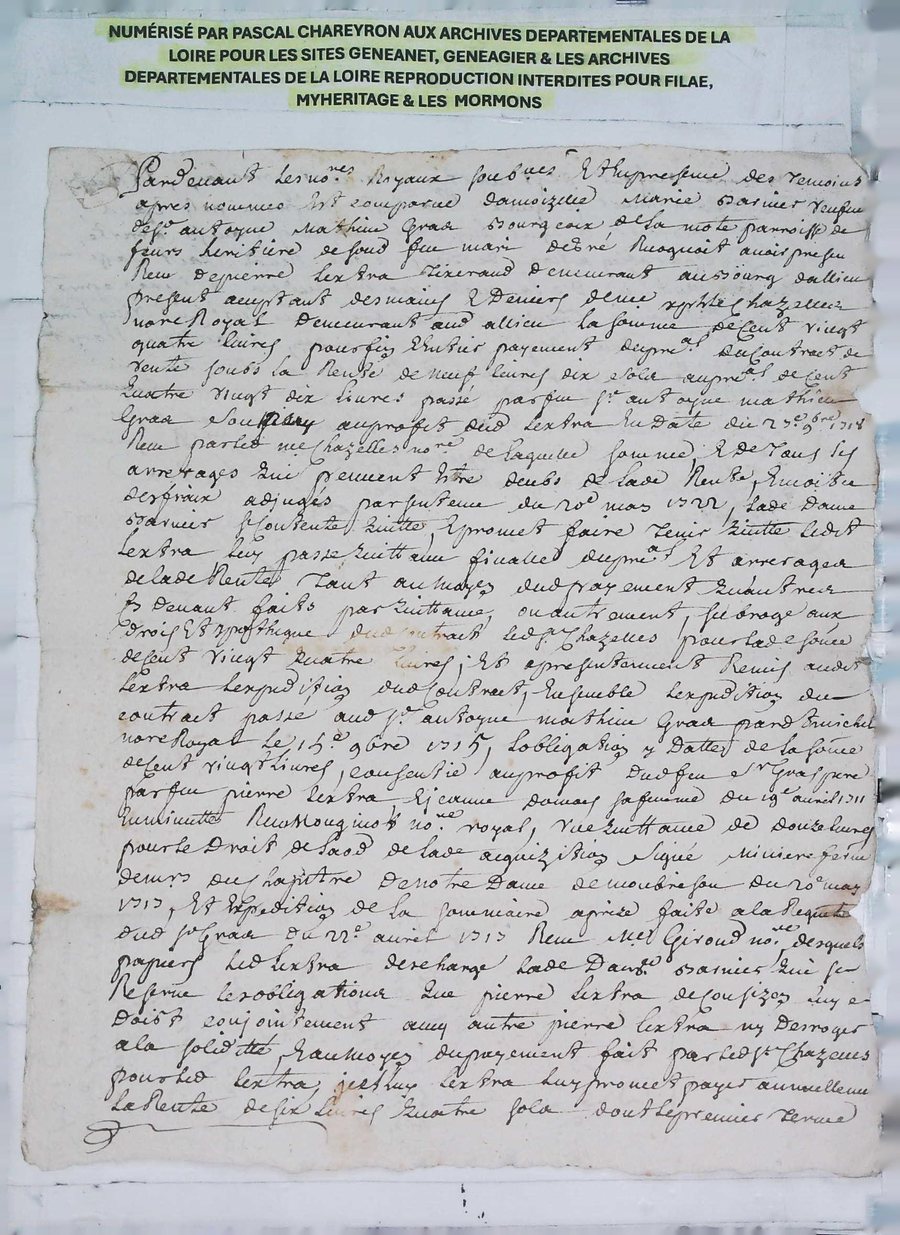 NUMÉRISÉ PAR PASCAL CHAREYRON AUX ARCHIVES DEPARTEMENTALES DE LA
LOIRE POUR LES SITES GENEANET, GENEAGIER & LES ARCHIVES
DEPARTEMENTALES DE LA LOIRE REPRODUCTION INTERDITES POUR FILAE,
MYHERITAGE & LES MORMONS
Pardevant les no.res Royaux soub.nes Et En presence des Temoins
apres nommes Est comparue damoizelle Marie Barnier veufve
de Sr antoyne Mathieu Gras Bourgeoix de la mote parroisse de
feurs heritiere de feu mari
pierre Lextra Tixerand demeurant au Bourg dallieu
present aceptant des mains E Deniers de me Chazelles
nore Royal Demeurant aud allieu la somme de Cent vingt
quatre livres pour fin Entier payement du prix du Contract de
vente soubs la Rente de neuf livres dix sols au de Cent
quatre vingt dix livres passé par feu Sr antoyne mathieu
Gras au profit dud Lextra En Date du 23e 9bre 1718
Receu par led me Chazelles no.re de laquelle somme E de Tous les
arrerages qui peuvent Etre deubs de lade Rente, E moitie
des fraix adjugés par sentence du 20e may 1722, lade Dame
Barnier se Contente quitte, E promet faire Tenir quitte ledit
Lextra Luy passe quittance finalle du Et arrerages
de lade Rente Tant au moyen dud payement qu'autres
Ey Devant faits par quittance, ou autrement, subroge aux
Droits Et hypotheque dud Contract led Sr Chazelles pour lade some
de Cent vingt quatre livres; Et a presentement Remis audit
Lextra Lexpedition dud Contract, Ensemble Lexpedition du
contract passé aud Sr antoyne mathieu Gras
nore Royal Le 15e 9bre 1715, Lobligation y Dattée de la some
de Cent vingt livres, consentie au profit dud feu Sr Gras pere
par feu pierre Lextra, E jeanne sa femme du 19e avril 1711
En minutte Receu Mouginot no.re royal, une quittance de Douze livres
pour le Droit de Laod de lade acquizition Signée
du Chapitre De notre Dame de montbrison du 20e may
1713, Et Expedition de la sommaire aprize faite a la Requeste
dud Sr Gras du 22e avril 1713 Receu Me Giroud no.re desquels
papiers led Lextra descharge lade Dame Barnier qui se
Reserve les obligations que pierre Lextra de luy
Doist conjointement avec autre pierre Lextra ny Desroger
a la soliditté, E au moyen du payement fait par led Sr Chazelles
pour led Lextra, icelluy Lextra luy promet payer annuellement
La Rente de six Livres quatre sols dont le premier Terme